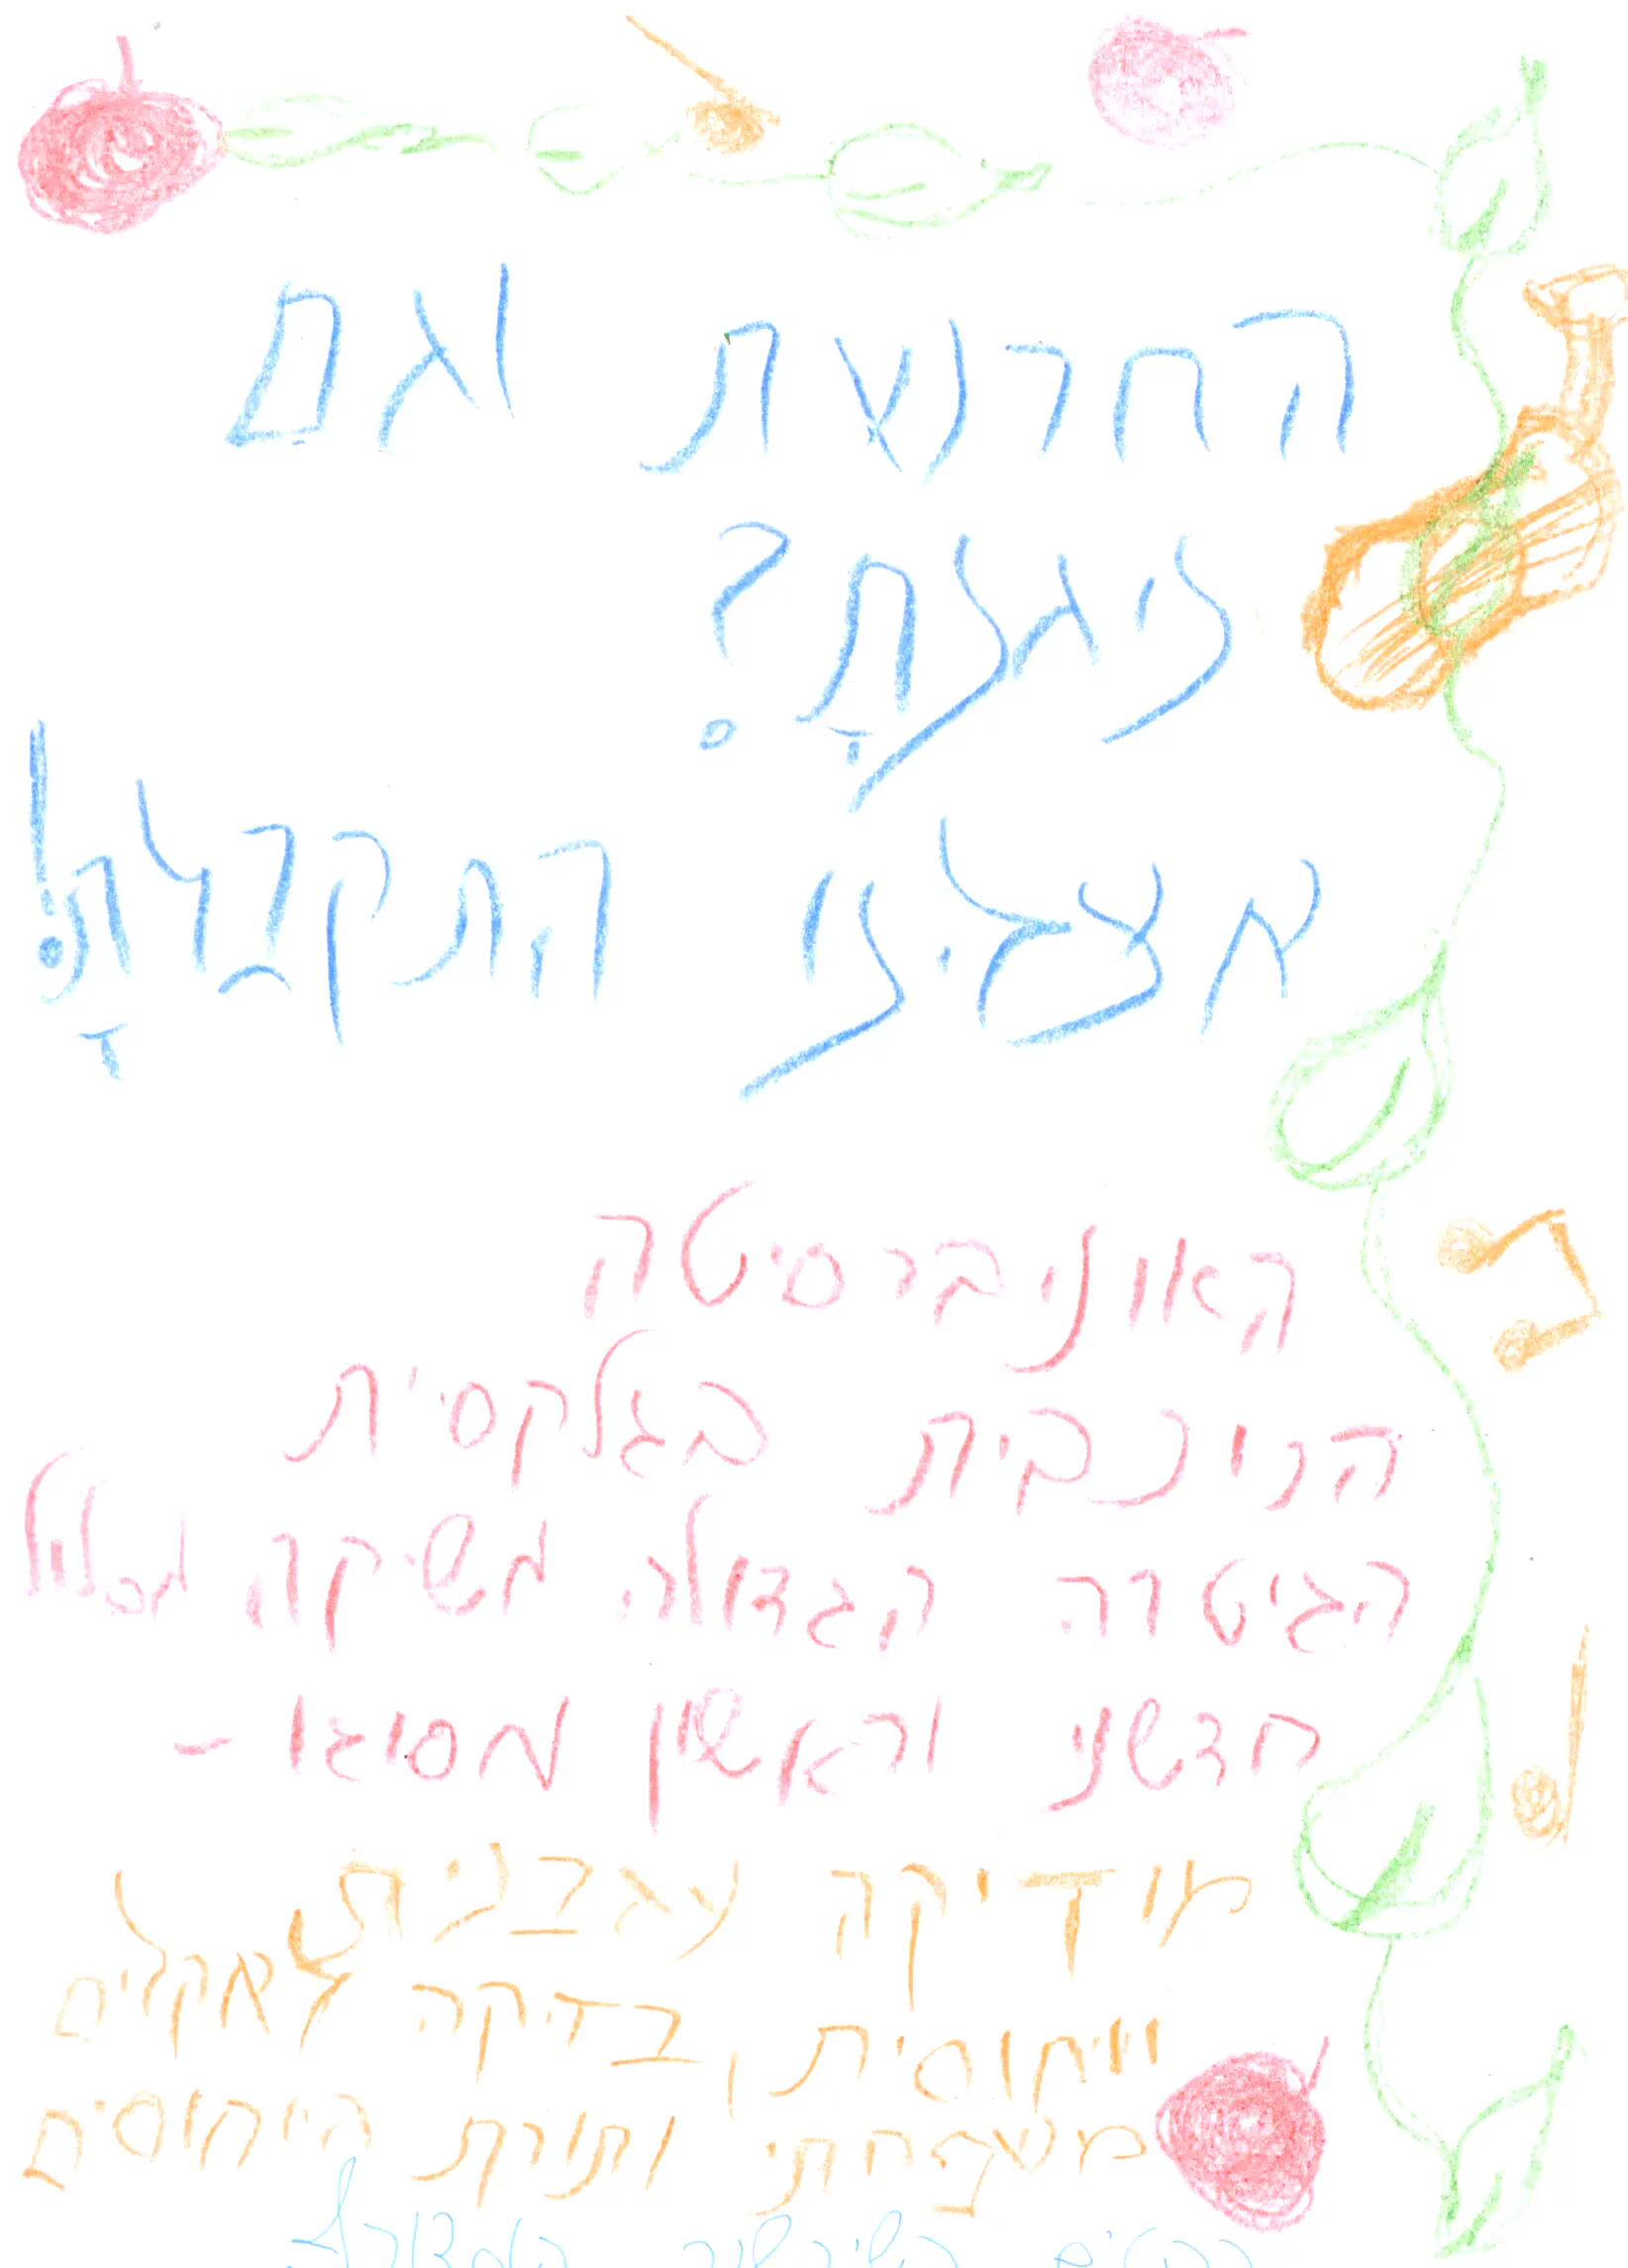 החרשת וגם
ניגנתָ?
אצלינו התקבלתָ!
האוניברסיטה
הכוכבית בגלקסית
הגיטרה הגדולה משיקה מסלול
חדשני וראשון מסוגו -
מוזיקה עגבנית
וייחוסית, בזיקה לאקלים
משפחתי ותורת היחוסים